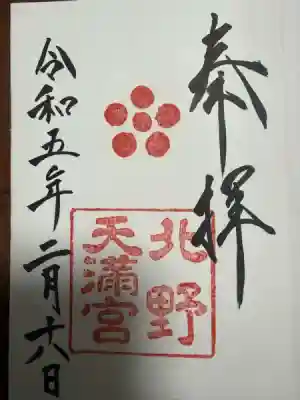 奉拝
北野
天満宮
令和五年二月十八日